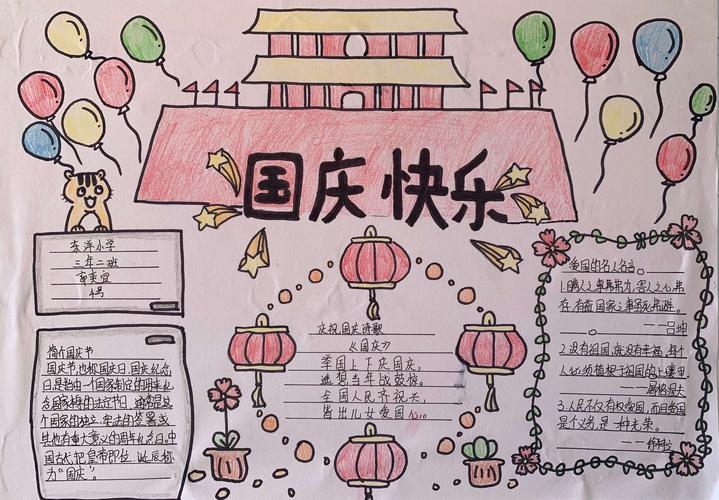 国庆快乐
东洋小学
三年二班
4号
简介国庆节
国庆节也被国庆日、国庆纪念
日,是指由一个国家制定的用来纪
念国家本身的法定节日,通常是这
个国家的独立、宪法的签署或
其他有重大意义的周年纪念日。中
国古代把皇帝即位、诞辰称
为“国庆”。
庆祝国庆诗歌
《国庆》
举国上下庆国庆,
遥想当年战鼓惊。
全国人民齐祝兴,
皆出儿女爱国心。
爱国的名人名言。
存,有益国家之事虽死弗避。
——吕坤
2.没有祖国,就没有幸福,每个
人必须植根于祖国的土壤里
——屠格涅夫
3.人民不仅有权爱国,而且爱国
是个义务,是一种光荣。